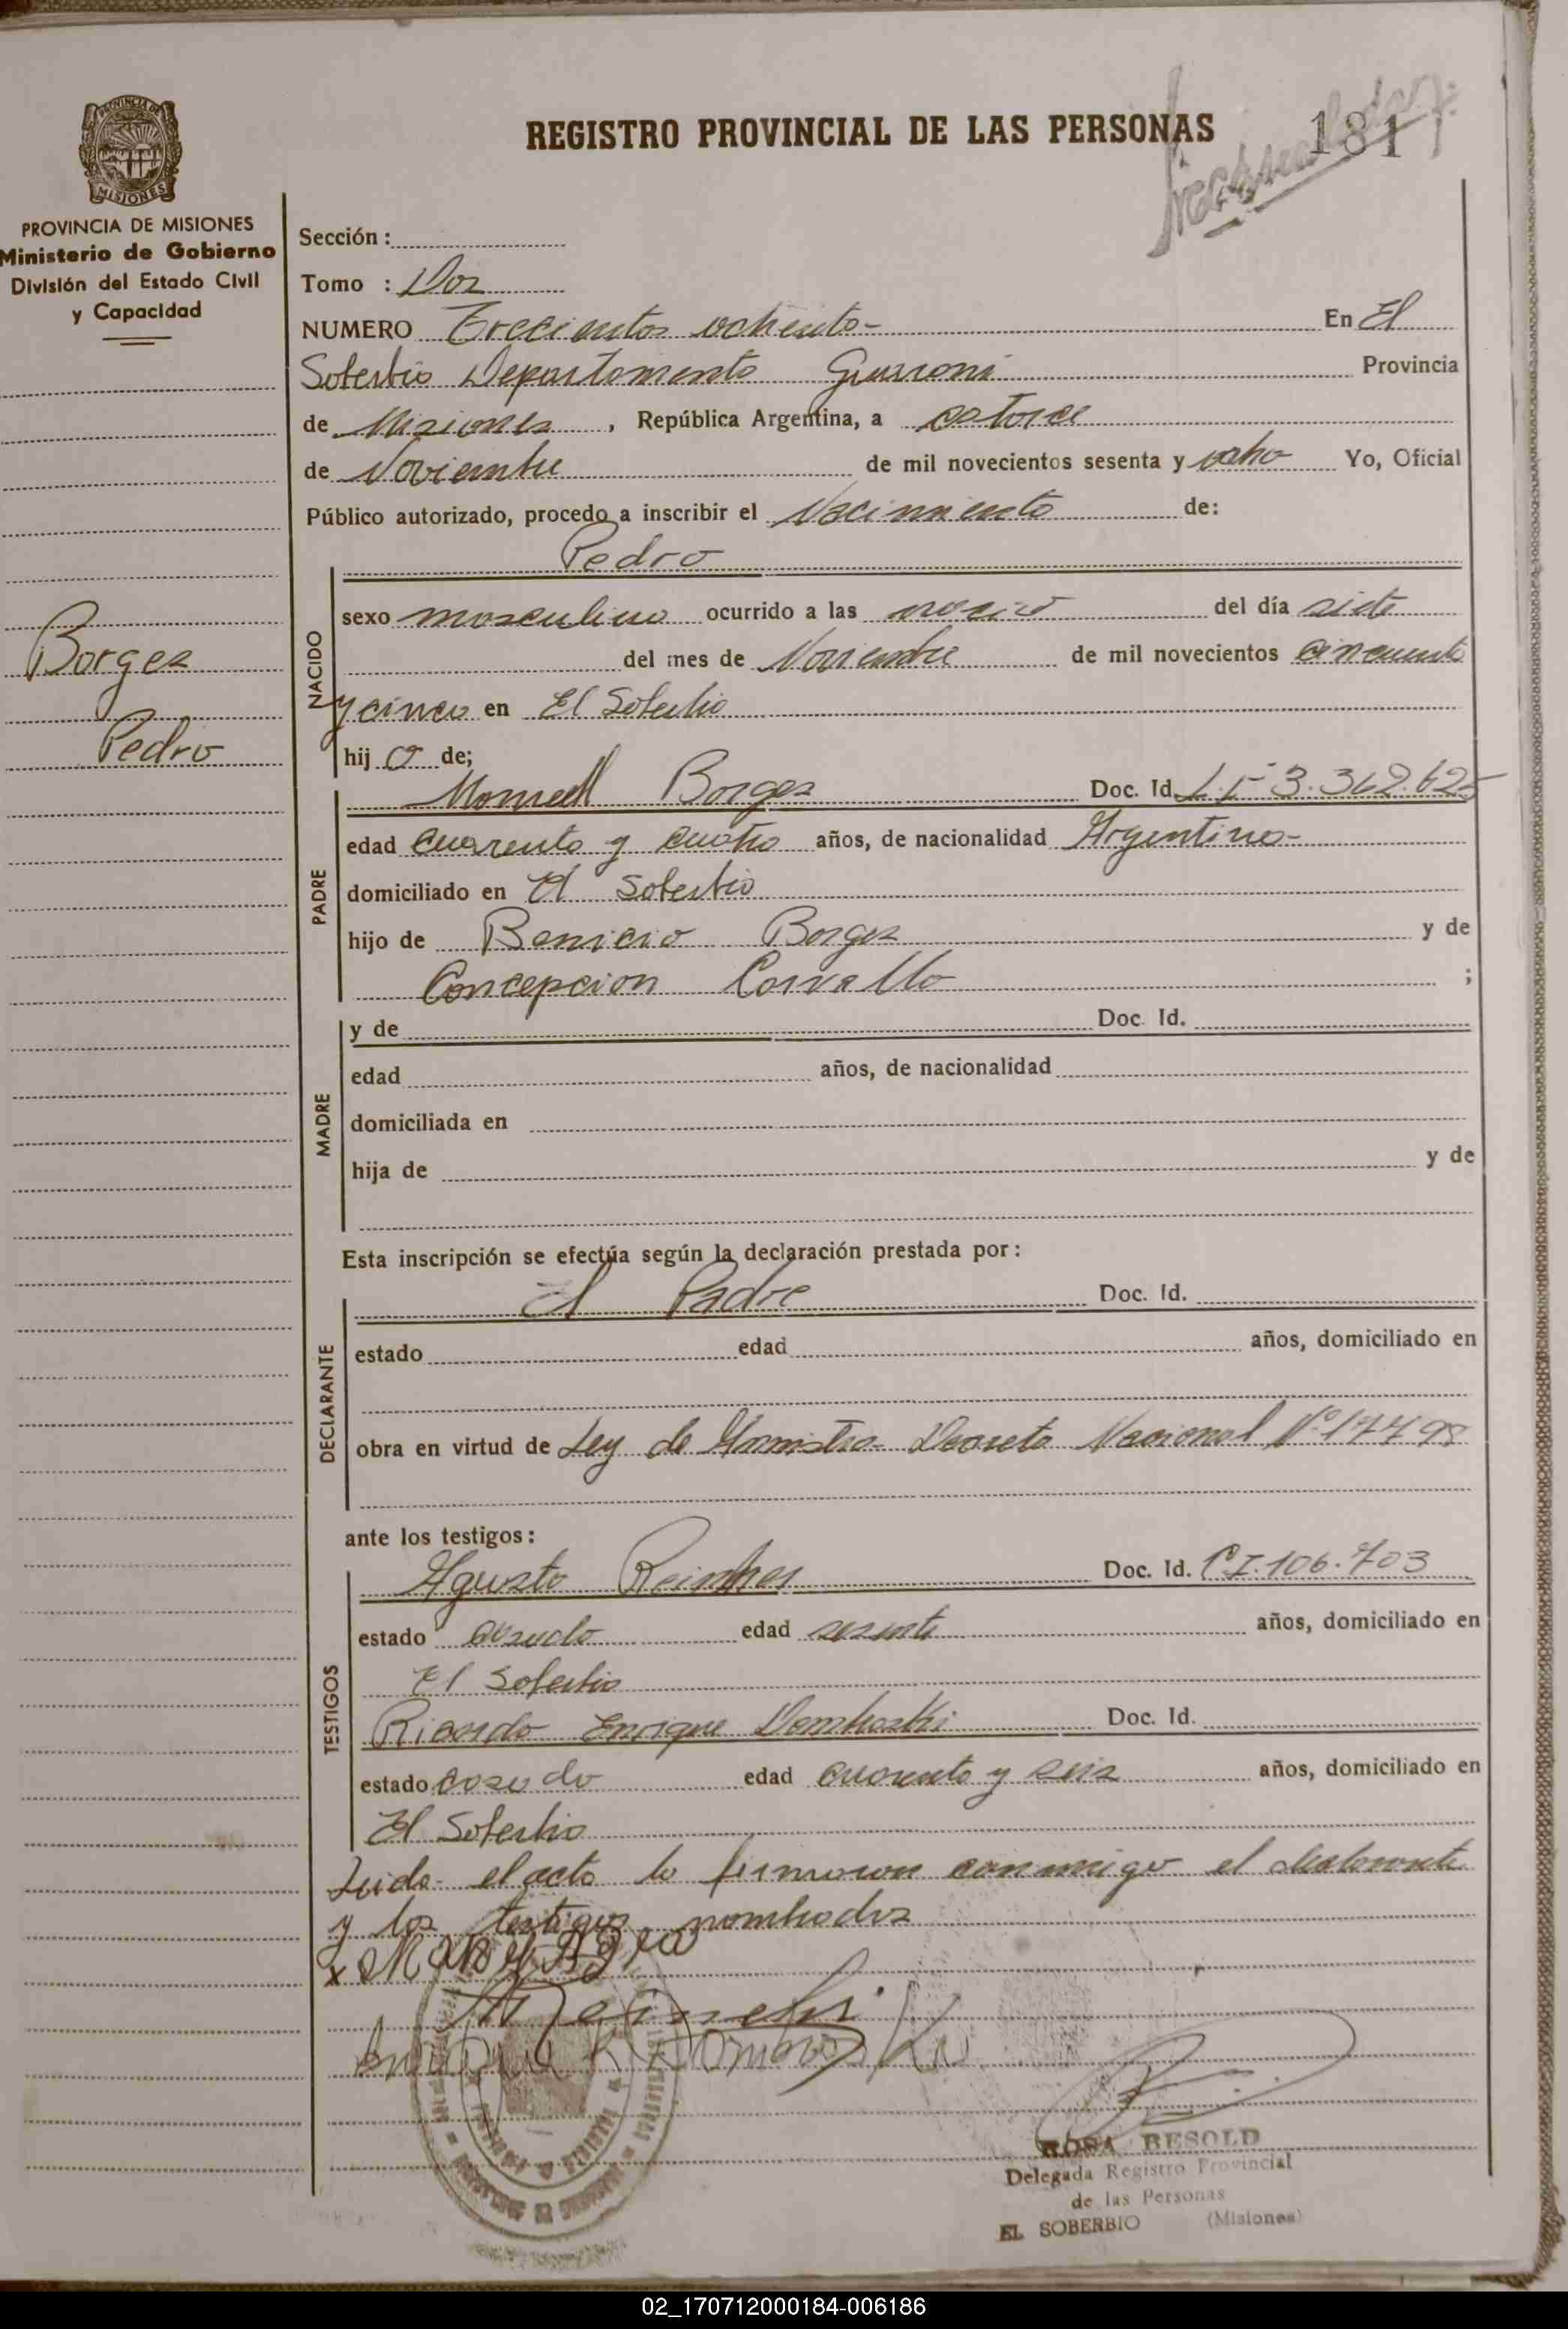 REGISTRO PROVINCIAL DE LAS PERSONAS
181
PROVINCIA DE MISIONES
MISIONES
PROVINCIA DE MISIONES
Ministerio de Gobierno
División del Estado Civil
y Capacidad
Borges
Pedro
Sección :
Tomo : Dos
NUMERO Trecientos ochenta- En El
Soberbio Departamento Guarani Provincia
de Misiones , República Argentina, a catorce
de Noviembre de mil novecientos sesenta y ocho Yo, Oficial
Público autorizado, procedo a inscribir el Nacimiento de:
Pedro
NACIDO
sexo masculino ocurrido a las del día siete
del mes de Noviembre de mil novecientos cincuenta
y cinco en El Soberbio
hij o de;
PADRE
Manuel Borges Doc. Id. L.E 3.362.625
edad cuarenta y cuatro años, de nacionalidad Argentino-
domiciliado en El Soberbio
hijo de Benicio Borges y de
Concepcion Carvallo ;
MADRE
y de Doc. Id.
edad años, de nacionalidad
domiciliada en
hija de y de
Esta inscripción se efectúa según la declaración prestada por :
DECLARANTE
El Padre Doc. Id.
estado edad años, domiciliado en
obra en virtud de Ley de Amnistia- Decreto Nacional Nº 17798
ante los testigos :
TESTIGOS
Agusto Doc. Id. C.I. 106.703
estado casado edad sesenta años, domiciliado en
El Soberbio
Ricardo Enrique Domboski Doc. Id.
estado casado edad cuarenta y seis años, domiciliado en
El Soberbio
Leida el acta la firmaron conmigo el declarante
y los testigos nombrados
ROSA BESOLD
Delegada Registro Provincial
de las Personas
EL SOBERBIO (Misiones)
02_170712000184-006186